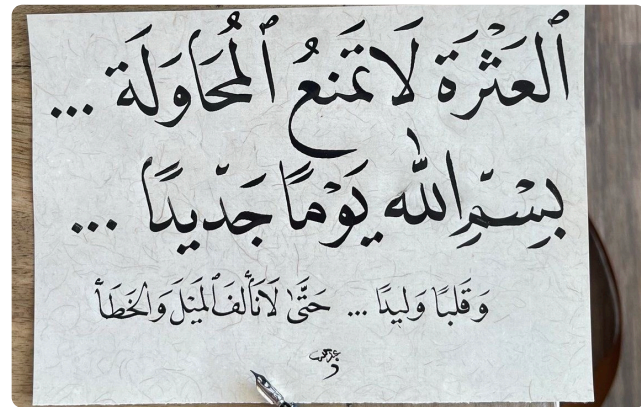 ٱلعَثْرَة لَا تَمنعُ ٱلمُحَاوَلَة ...
بِسْمِ الله يَوْمًا جَدّيدًا ...
وَ قَلبًا وَليدًا ... حَتَّىٰ لَا نَألَفَ ٱلمَيَلَ وَالخَطَأ